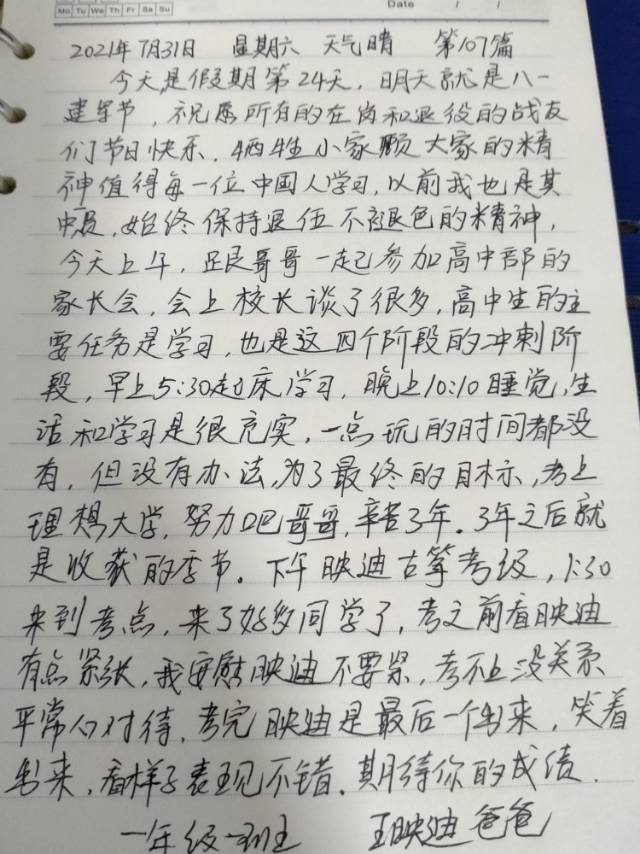 Mo Tu We Th Fr Sa Su
Date / /
2021年7月31日 星期六 天气晴 第107篇
今天是假期第24天,明天就是八一
建军节,祝愿所有的在岗和退役的战友
们节日快乐,牺牲小家顾大家的精
神值得每一位中国人学习,以前我也是其
中一员,始终保持退伍不褪色的精神,
今天上午,跟哥哥一起参加高中部的
家长会,会上校长谈了很多,高中生的主
要任务是学习,也是这四个阶段的冲刺阶
段,早上5:30起床学习,晚上10:10睡觉,生
活和学习是很充实,一点玩的时间都没
有,但没有办法,为了最终的目标,考上
理想大学,努力吧哥哥,辛苦3年.3年之后就
是收获的季节。下午映迪古筝考级,1:30
来到考点,来了好多同学了,考之前看映迪
有点紧张,我安慰映迪不要紧,考不上没关系
平常心对待.考完映迪是最后一个出来,笑着
出来,看样子表现不错.期待你的成绩.
一年级一班 王映迪爸爸